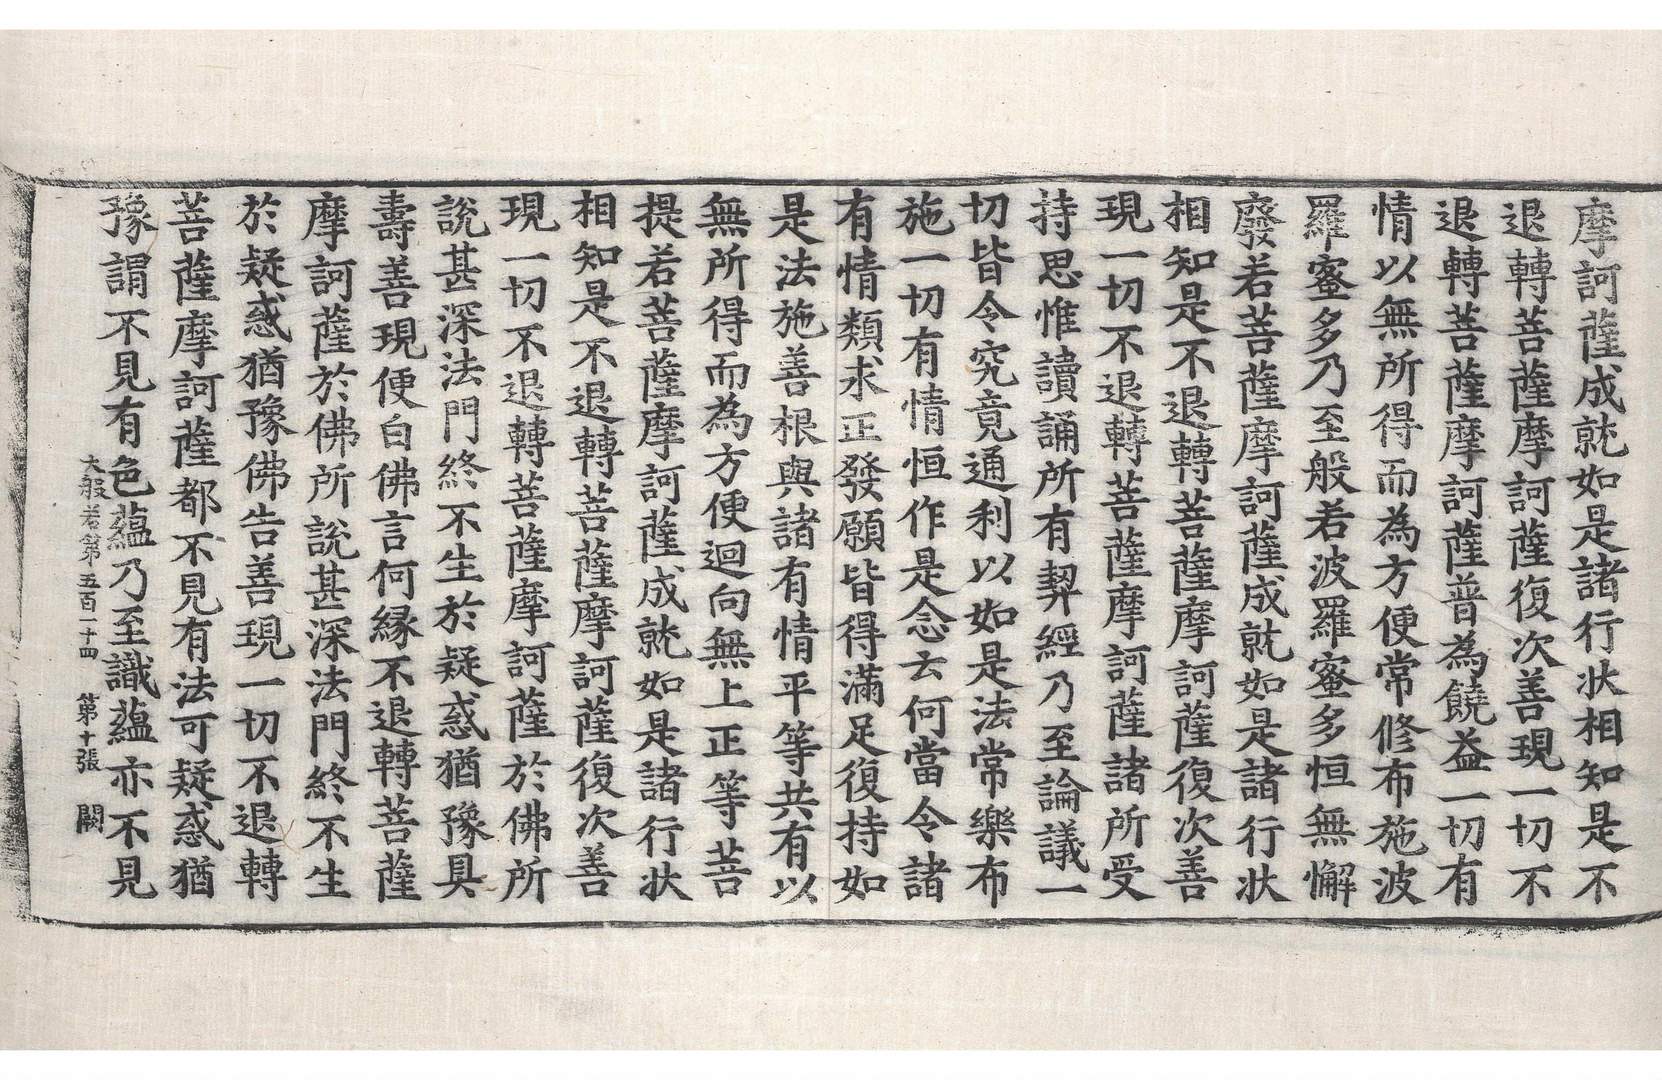 摩訶薩成就如是諸行狀相知是不
退轉菩薩摩訶薩復次善現一切不
退轉菩薩摩訶薩普為饒益一切有
情以無所得而為方便常修布施波
羅蜜多乃至般若波羅蜜多恒無懈
廢若菩薩摩訶薩成就如是諸行狀
相知是不退轉菩薩摩訶薩復次善
現一切不退轉菩薩摩訶薩諸所受
持思惟讀誦所有契經乃至論議一
切皆令究竟通利以如是法常樂布
施一切有情恒作是念云何當令諸
有情類求正發願皆得滿足復持如
是法施善根與諸有情平等共有以
無所得而為方便迴向無上正等菩
提若菩薩摩訶薩成就如是諸行狀
相知是不退轉菩薩摩訶薩復次善
現一切不退轉菩薩摩訶薩於佛所
說甚深法門終不生於疑惑猶豫具
壽善現便白佛言何緣不退轉菩薩
摩訶薩於佛所說甚深法門終不生
於疑惑猶豫佛告善現一切不退轉
菩薩摩訶薩都不見有法可疑惑猶
豫謂不見有色蘊乃至識蘊亦不見
大般若卷第五百一十四 第十張 闕